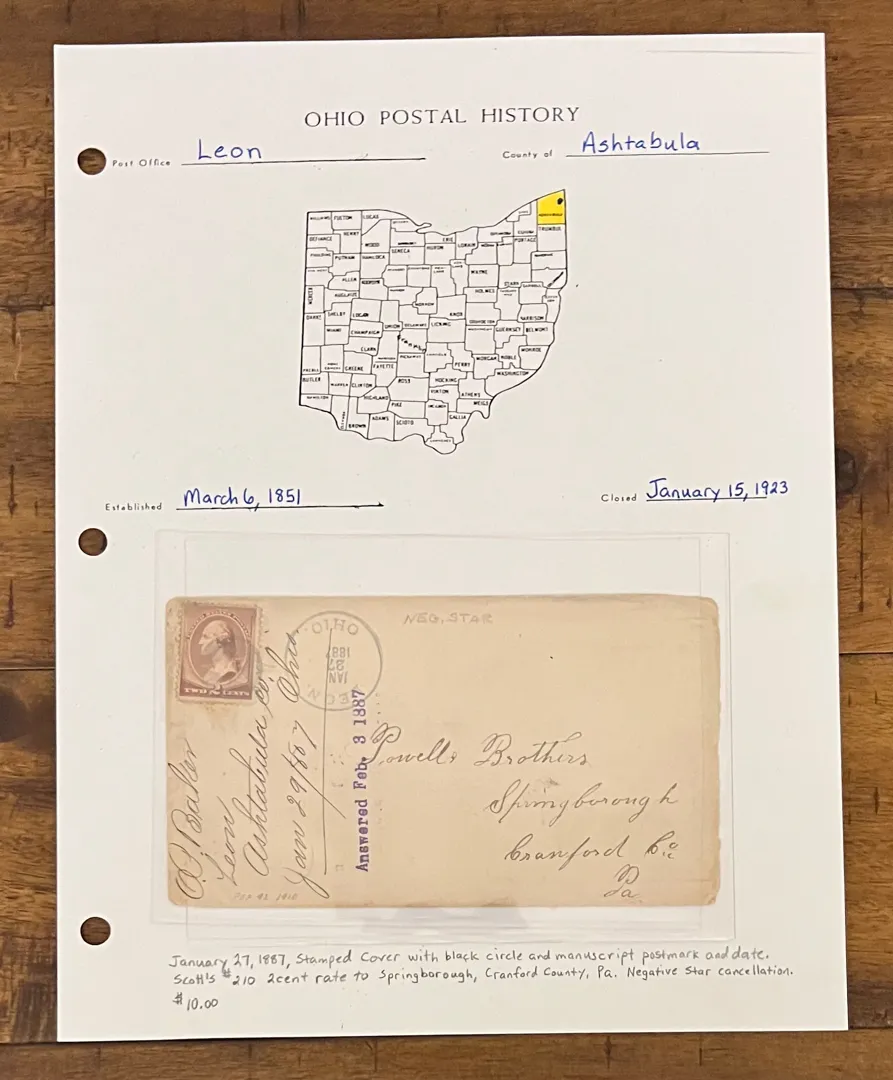 OHIO POSTAL HISTORY
Post Office Leon County of Ashtabula
WILLIAMS FULTON LUCAS
DEFIANCE HENRY WOOD SENECA HURON ERIE LORAIN PORTAGE TRUMBULL
PAULDING PUTNAM HANCOCK
ALLEN WAYNE STARK
MERCER AUGLAIZE HOLMES
DARKE SHELBY LOGAN UNION DELAWARE MORROW KNOX LICKING HARRISON
MIAMI CHAMPAIGN GUERNSEY BELMONT
CLARK Franklin MONROE
PREBLE GREENE FAYETTE PERRY MORGAN NOBLE
BUTLER WARREN CLINTON ROSS HOCKING WASHINGTON
HAMILTON HIGHLAND VINTON ATHENS
PIKE MEIGS
BROWN ADAMS SCIOTO GALLIA
Established March 6, 1851 Closed January 15, 1923
NEG. STAR
TWO 2 CENTS
OHIO
JAN
27
1887
LEON
Leon
Ashtabula Co.
Jan 29/887 Ohio
Answered Feb. 3 1887
Powells Brothers
Springborough
Cranford Co.
Pa.
January 27, 1887, Stamped Cover with black circle and manuscript postmark and date.
Scott's #210 2cent rate to Springborough, Cranford County, Pa. Negative Star cancellation.
$10.00